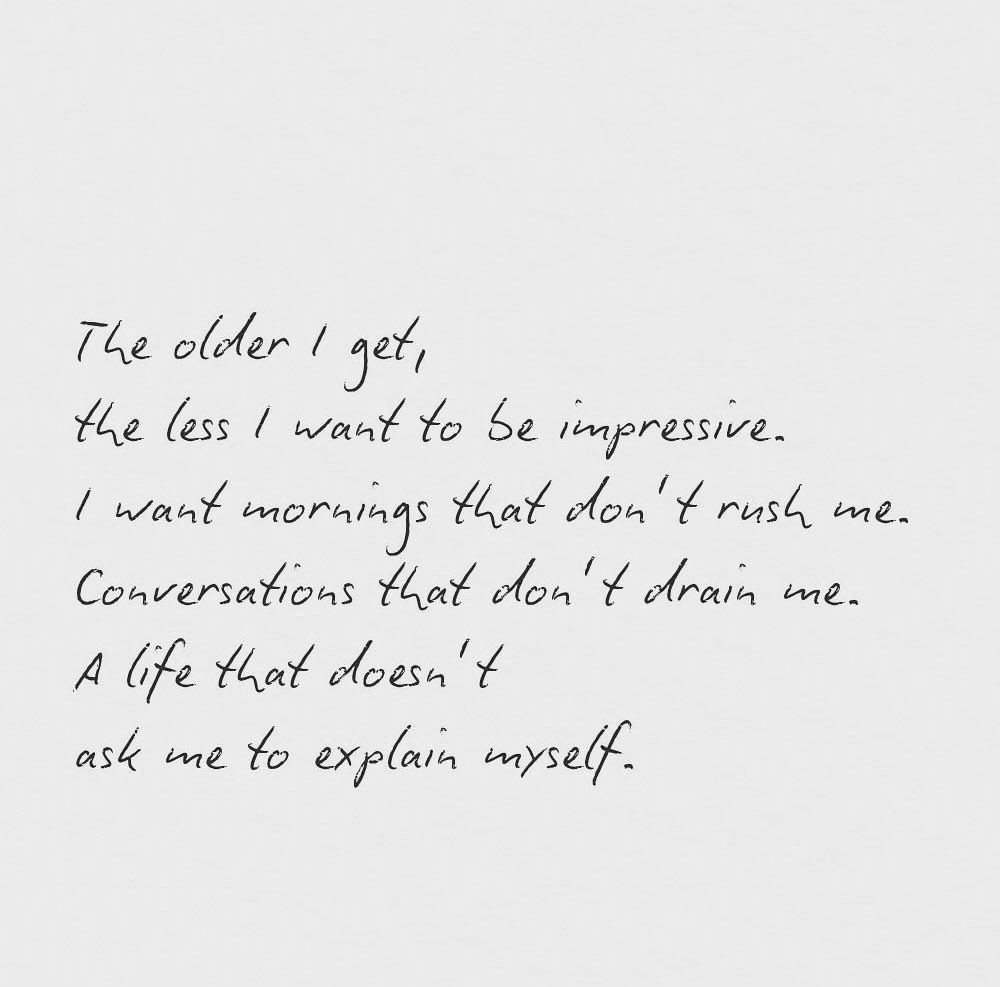 The older I get,
the less I want to be impressive.
I want mornings that don't rush me.
Conversations that don't drain me.
A life that doesn't
ask me to explain myself.